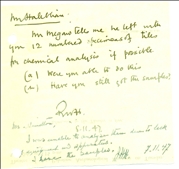 Mr Hallchin.
Mr Megans tells me he left with
you 12 numbered specimens of tiles
for chemical analysis if possible
(a) Were you able to do this
Have you still got the samples?
5.11.47
I was unable to analyse them due to lack
of and apparatus.
I have the samples.
7.11.47